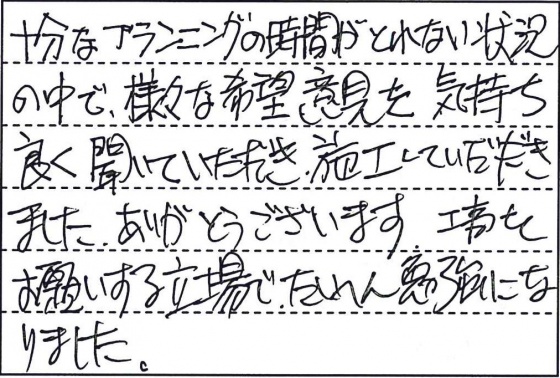 十分なプランニングの時間がとれない状況
の中で、様々な希望、意見を 気持ち
良く聞いていただき、施工していただき
ました。ありがとうございます。工事を
お願いする立場で、たいへん勉強にな
りました。